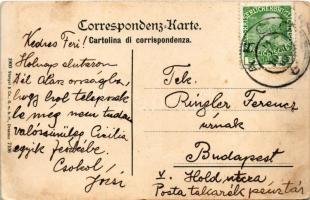 Correspondenz-Karte.
Cartolina di corrispondenza.
Kedves Feri!
Holnap elutazom
Dél Olaszországba,
hogy hol telepszek
le még nem tudom
valószínűleg Cicilia
egyik fürdőjébe.
Csókol,
Józsi
Tek.
Ringler Ferencz
úrnak
Budapest
V. Hold utcza
Posta takarék pénztár